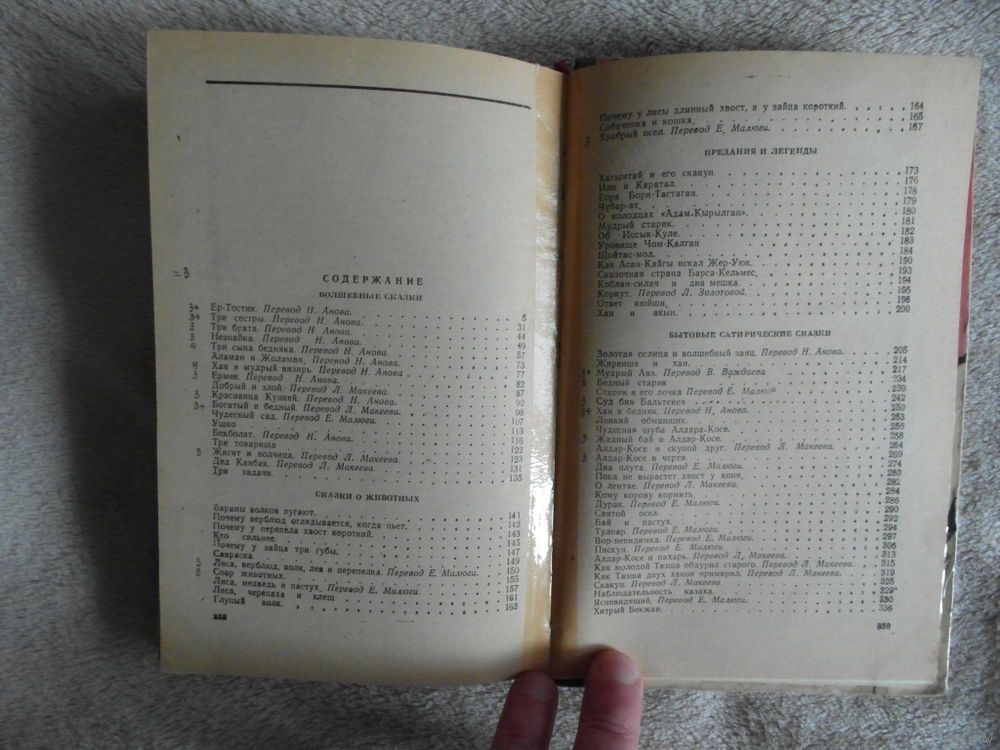 =3
СОДЕРЖАНИЕ
ВОЛШЕБНЫЕ СКАЗКИ
3+ Ер-Тостик. Перевод Н. Анова. 5
3+ Три сестры. Перевод Н. Анова. 31
3 Три брата. Перевод Н. Анова. 44
3 Незнайка. Перевод Н. Анова. 49
4 Три сына бедняка. Перевод Н. Анова. 57
Аламан и Жоламан. Перевод Н. Анова. 73
4 Хан и мудрый визирь. Перевод Н. Анова 77
3 Ермек Перевод Н. Анова. 82
Добрый и злой. Перевод Л. Макеева. 87
3 Красавица Кункей. Перевод Н. Анова. 90
3+ Богатый и бедный. Перевод Л. Макеева. 98
Чудесный сад. Перевод Е. Малюги. 107
Ушко 113
Бекболат. Перевод Н. Анова. 116
Три товарища 122
3 Жигит и волчица. Перевод Л. Макеева. 123
Дед Канбак. Перевод Л. Макеева. 131
Три задачи. 135
СКАЗКИ О ЖИВОТНЫХ
Бараны волков пугают. 141
Почему верблюд оглядывается, когда пьет. 142
Почему у перепела хвост короткий. 143
Кто сильнее. 145
Почему у зайца три губы. 147
Савраска. 149
3 Лиса, верблюд, волк, лев и перепелка. Перевод Е. Малюги. 150
3 Спор животных. 155
Лиса, медведь и пастух. Перевод Е. Малюги. 157
Лиса, черепаха и клещ 161
Глупый волк. 163
Почему у лисы длинный хвост, а у зайца короткий. 164
Собачонка и кошка. 165
3 Храбрый осел. Перевод Е. Малюги. 167
ПРЕДАНИЯ И ЛЕГЕНДЫ
Хатымтай и его скакун. 173
Или и Каратал. 176
Гора Бори-Тастаган. 178
Чубар-ат. 179
О колодцах «Адам-Кырылган». 180
Мудрый старик. 181
Об Иссык-Куле. 182
Урочище Чом-Калган 183
Шойтас-мол. 184
Как Асан-Кайгы искал Жер-Уюк. 190
Сказочная страна Барса-Кельмес. 193
Коблан-силач и два мешка. 194
Коркут. Перевод Л. Золотовой. 195
Ответ кюйши. 198
Хан и акын. 200
БЫТОВЫЕ САТИРИЧЕСКИЕ СКАЗКИ
Золотая ослица и волшебный заяц. Перевод Н. Анова. 205
Жиренше и хан. 214
3+ Мудрый Аяз. Перевод В. 217
3 Бедный старик 234
Старик и его дочка Перевод Е. Малюги 239
3 Суд бия Бальтекея 242
3+ Хан и бедняк. Перевод Н. Анова. 250
Ловкий обманщик. 253
Чудесная шуба Алдара-Косе. 256
3 Жадный бай и Алдар-Косе. 258
Алдар-Косе и скупой друг. Перевод Л. Макеева. 264
3 Алдар-Косе и черти. 269
Два плута. Перевод Е. Малюги. 274
Пока не вырастет хвост у коня. 280
О лентяе. Перевод Л. Макеева. 282
Кому корову кормить. 284
Дурак. Перевод Е. Малюги. 286
Святой осел. 290
Бай и пастух. 292
Тулпар. Перевод Е. Малюги. 294
Вор-невидимка. Перевод Е. Малюги. 297
Пискун. Перевод Е. Малюги. 306
Алдар-Косе и пахарь. Перевод Л. Макеева. 313
Как молодой Тазша обдурил старого. Перевод Л. Макеева. 315
Как Тазша двух ханов примирил. Перевод Л. Макеева. 319
Скакун. Перевод Л. Макеева. 325
Наблюдательность казаха. 329
Ясновидящий. Перевод Е. Малюги. 330
Хитрый Бекжан. 336
359